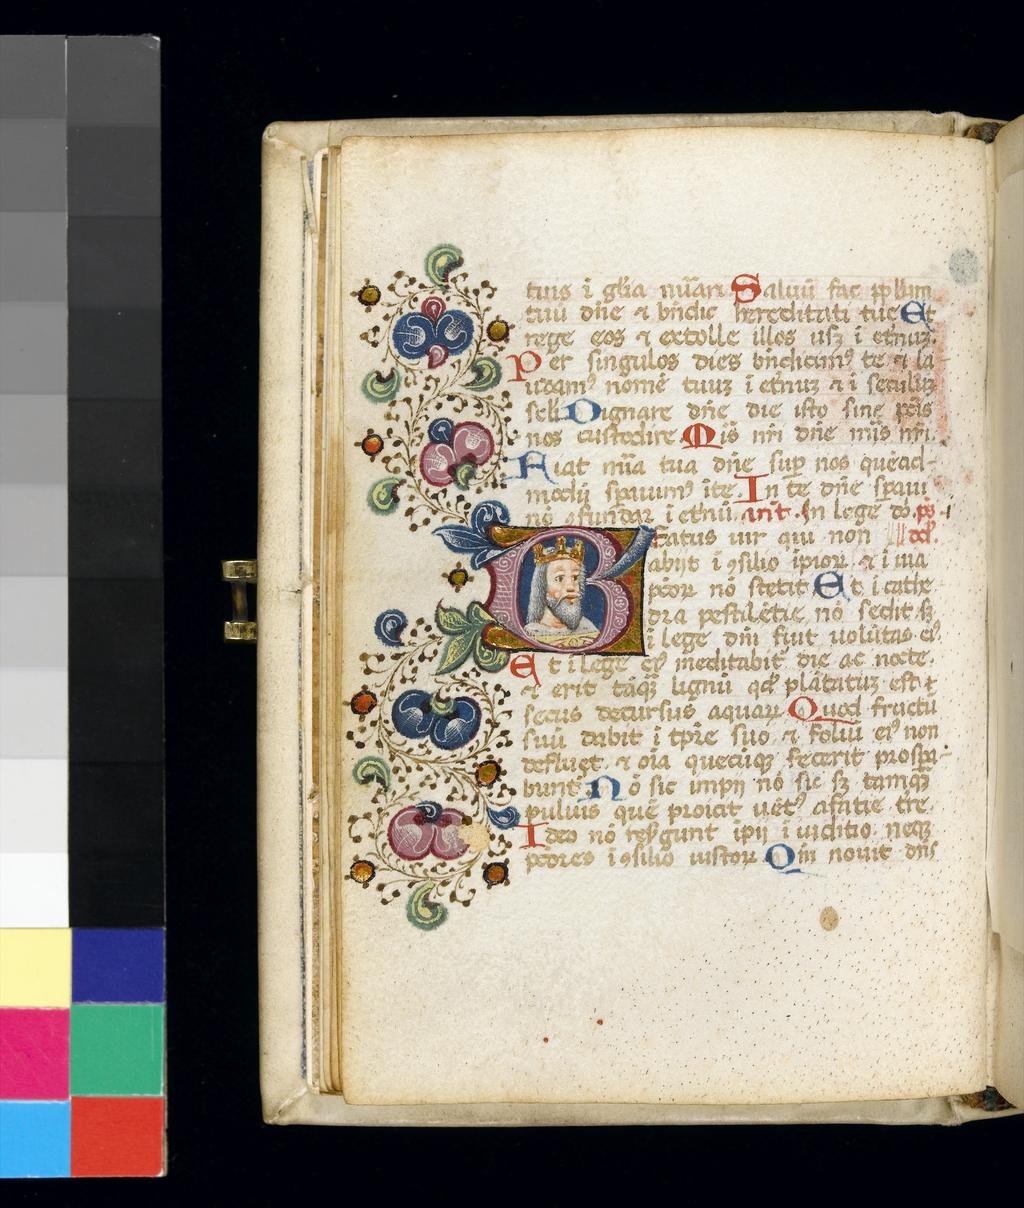 tuis i gl̄ia nūari Saluū fac pp̄lum
tuū dn̄e ⁊ bn̄dic hereditati tue Et
rege eos ⁊ extolle illos usq̨ i et̄nuʒ.
Per singulos dies bn̄dicim᷒ te ⁊ la
udam᷒ nomē tuuʒ i et̄nuʒ ⁊ i seculuʒ
sc̄li Dignare dn̄e die isto sine pc̄is
nos custodire Mis nr̄i dn̄e mis nr̄i.
Fiat mīa tua dn̄e sup̄ nos quēad-
modū spauim᷒ i te. In te dn̄e spaui
nō ꝯfundar i et̄nū. ant. In lege dō. ps
Beatus uir qui non
abijt i ꝯsilio ipioꝝ ⁊ i uia
pc̄oꝝ nō stetit Et i cathe
dra pestilētie nō sedit sʒ
i lege dn̄i fuit uolūtas ei᷒
Et i lege ei᷒ meditabit᷑ die ac nocte.
⁊ erit tāqʒ lignū qd̄ plātatuʒ est
secus decursus aquaꝝ Quod fructū
suū dabit i tp̄re suo ⁊ foliū ei᷒ non
defluet ⁊ oīa quecūqʒ fecerit prospa-
bunt᷑ Nō sic impij nō sic sʒ tamqʒ
puluis quē proicit uēt᷒ afatie tr̄e.
Ideo nō res᷑gunt ipij i iuditio neqʒ
pc̄ores i ꝯsilio iustoꝝ Qm̄ nouit dn̄s